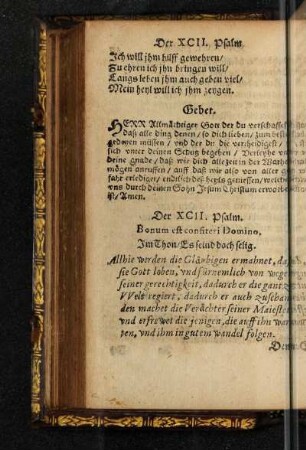 Der XCII. Psalm.
Ich will jhm hilff gewehren/
Zu ehren ich jhn bringen will/
Langs leben jhm auch geben viel/
Mein heyl will ich jhm zeygen.
Gebet.
HERR Allmächtiger Gott der du verschaffest
daß alle ding denen/ so dich lieben/ zum besten
gedeyen müssen/ vnd der du die vertheidigest/
sich vnter deinen Schutz begeben/ Verleyhe vns
deine gnade/ daß wir dich allezeit in der Warheit
mögen anruffen/ auff daß wir also von aller
fahr erlediget/ endtlich deß heyls geniessen/
vns durch deinen Sohn Jesum Christum erworben
ist/ Amen.
Der XCII. Psalm.
Bonum est confiteri Domino,
Im Thon/ Es seind doch selig.
Allhie werden die Gläubigen ermahnet, daß
sie Gott loben, vnd fürnemlich von wegen
seiner gerechtigkeit, dadurch er die gantze
VVelt regiert, dadurch er auch zuschanden
den machet die Verächter seiner Maiestet
vnd erfrewet die jenigen, die auff ihn
ten, vnd ihm in gutem wandel folgen.